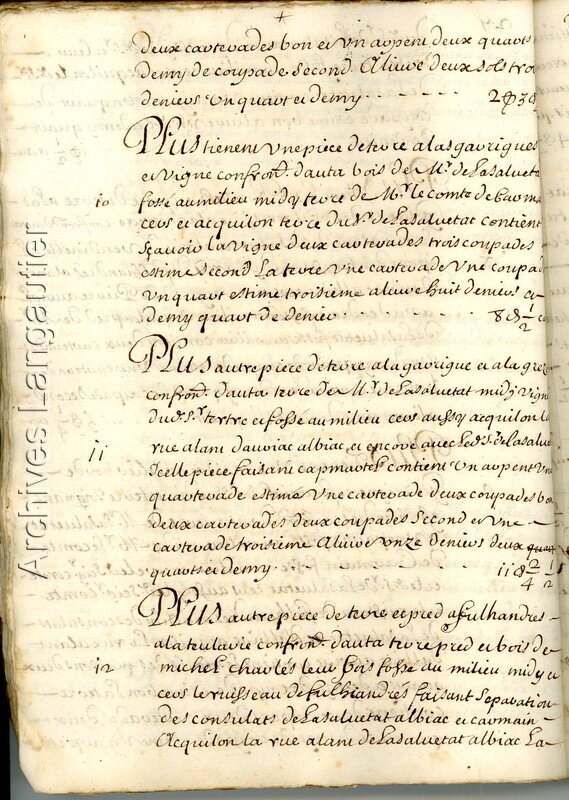 deux carterades bon et un arpent deux quarts
demy de coupade second. Alivré deux sols trois
deniers un quart et demy . . . . . 2 ₰ 3 ₰
Plus tienent une piece de terre a las garrigues
et vigne confron.t d'auta bois de M.r de Lasalvetat
10
fossé au milieu midy terre de M.r le comte de Carma
cers et aquilon terre du S.r de Lasalvetat contient
sçavoir la vigne deux carterades trois coupades
estime second La terre une carterade une coupade
un quart estime troisieme alivré huit deniers et
demy quart de denier . . . . 8 ₰ 1/2
Plus autre piece de terre a la garrigue et a la gre
confron.t d'auta terre de M.r de Lasalvetat midy vigne
du d. S.r tertre et fossé au milieu cers aussy aquilon la
11
rue alant d'auriac albiac, et encore avec led. S.r de Lasalve
Icelle piece faisant capmartel contient un arpent une
quarterade estime une carterade deux coupades bon
deux carterades deux coupades second et une
carterade troisieme Alivré unze deniers deux quart
quarts et demy . . . . 11 ₰ 2/4 1/2
Plus autre piece de terre et pred a fulhandres
a la teulavie confron.t d'auta terre pred et bois de
12
michel charlés leur bois fossé au milieu midy et
cers le ruisseau de fulhandrés faisant separation
des consulats de Lasalvetat albiac et carmain
Acquilon la rue alant de Lasalvetat albiac La
Archives Langautier